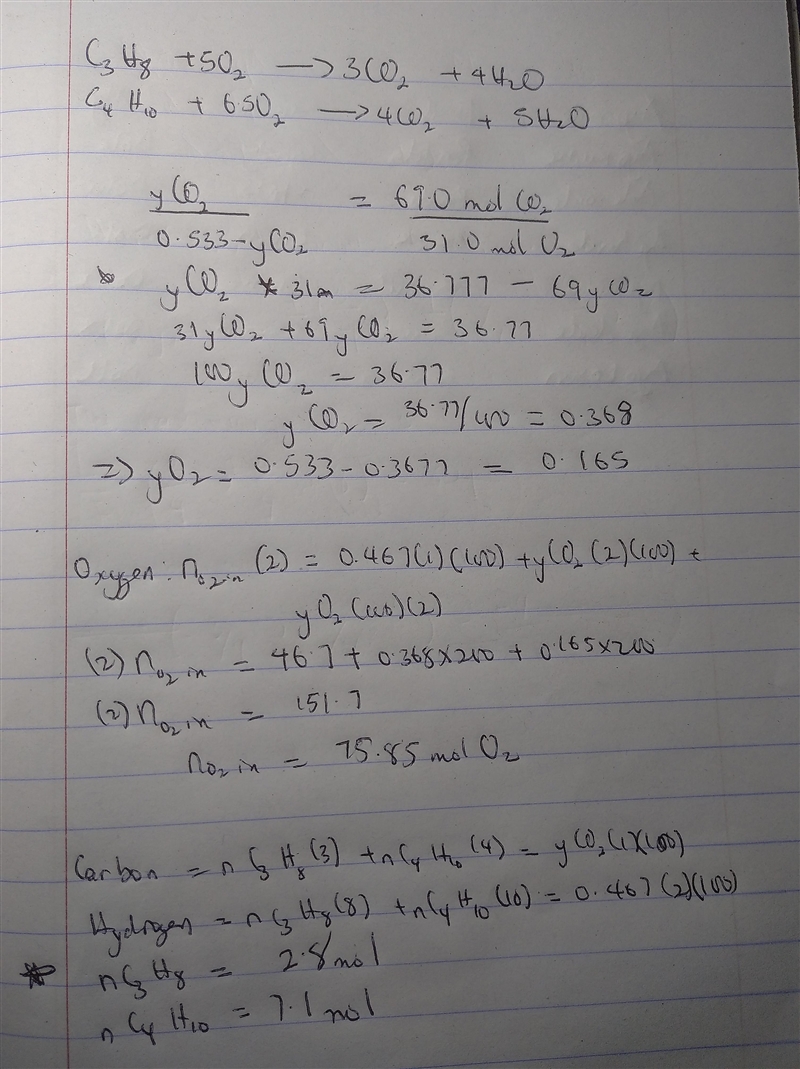 C₃H₈ + 5O₂ → 3CO₂ + 4H₂O
C₄H₁₀ + 6.5O₂ → 4CO₂ + 5H₂O
yCO₂ / 0.533 - yCO₂ = 69.0 mol CO₂ / 31.0 mol O₂
yCO₂ * 31 = 36.777 - 69yCO₂
31yCO₂ + 69yCO₂ = 36.77
100yCO₂ = 36.77
yCO₂ = 36.77/100 = 0.368
=> yO₂ = 0.533 - 0.3677 = 0.165
Oxygen: nO₂ in (2) = 0.467(1)(100) + yCO₂(2)(100) +
yO₂(100)(2)
(2)nO₂ in = 46.7 + 0.368×200 + 0.165×200
(2)nO₂ in = 151.7
nO₂ in = 75.85 mol O₂
Carbon = nC₃H₈(3) + nC₄H₁₀(4) = yCO₂(1)(100)
Hydrogen = nC₃H₈(8) + nC₄H₁₀(10) = 0.467(2)(100)
nC₃H₈ = 2.8mol
nC₄H₁₀ = 7.1mol